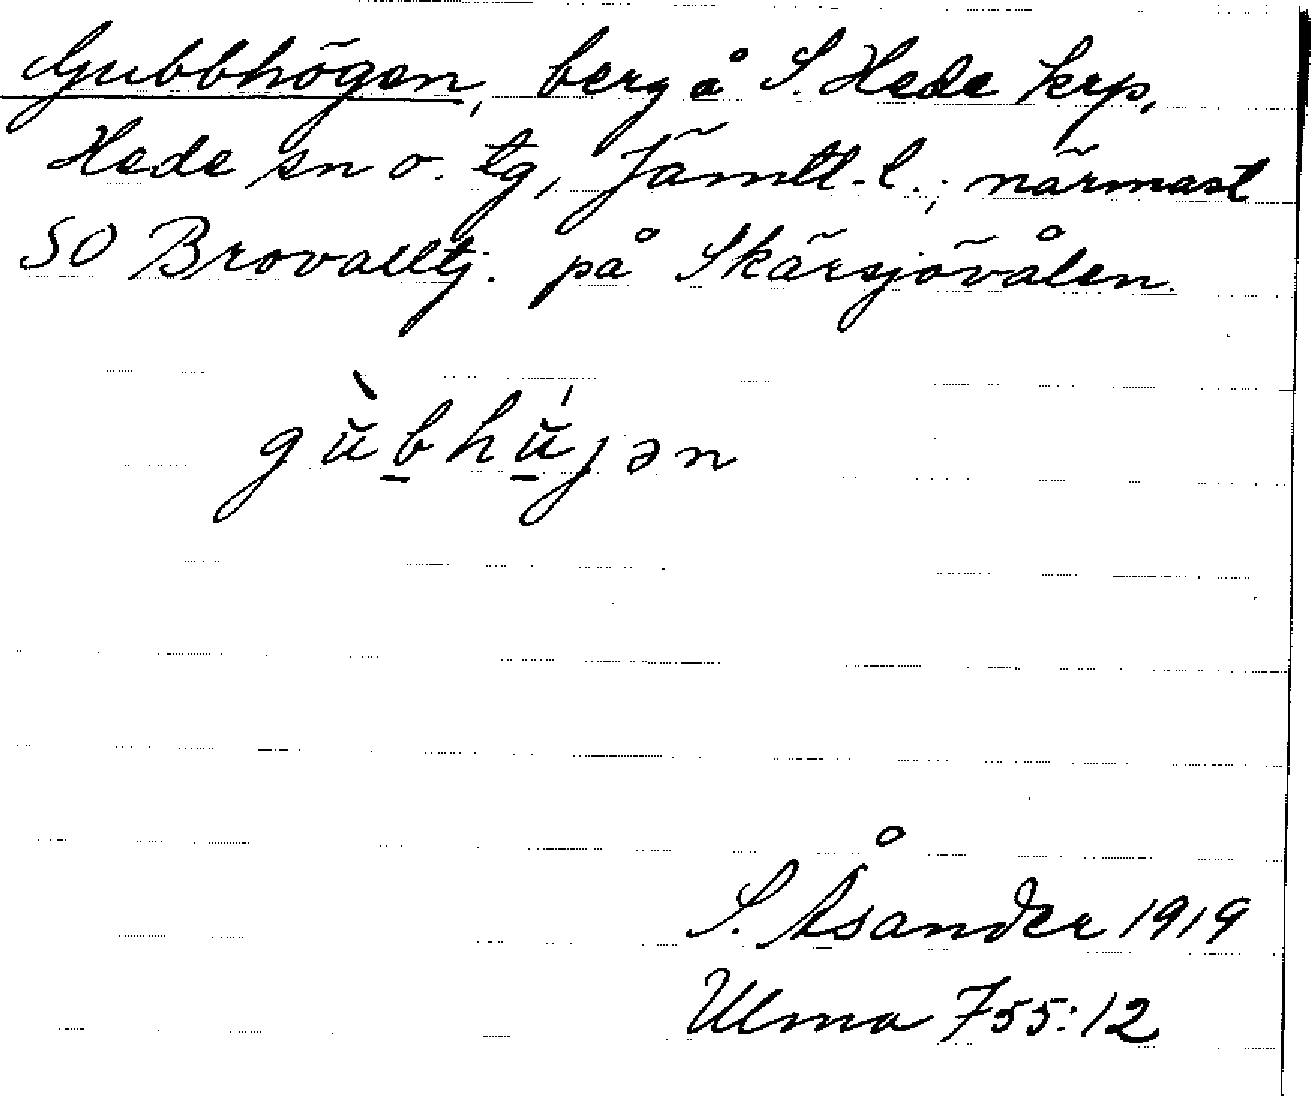 Gubbhögen, berg å S. Hede krp,
Hede sn o. tg, Jämtl. l.; närmast
SO Brovalltj. på Skärsjövålen.
gùbhújən
S. Åsander 1919
Ulma 755:12